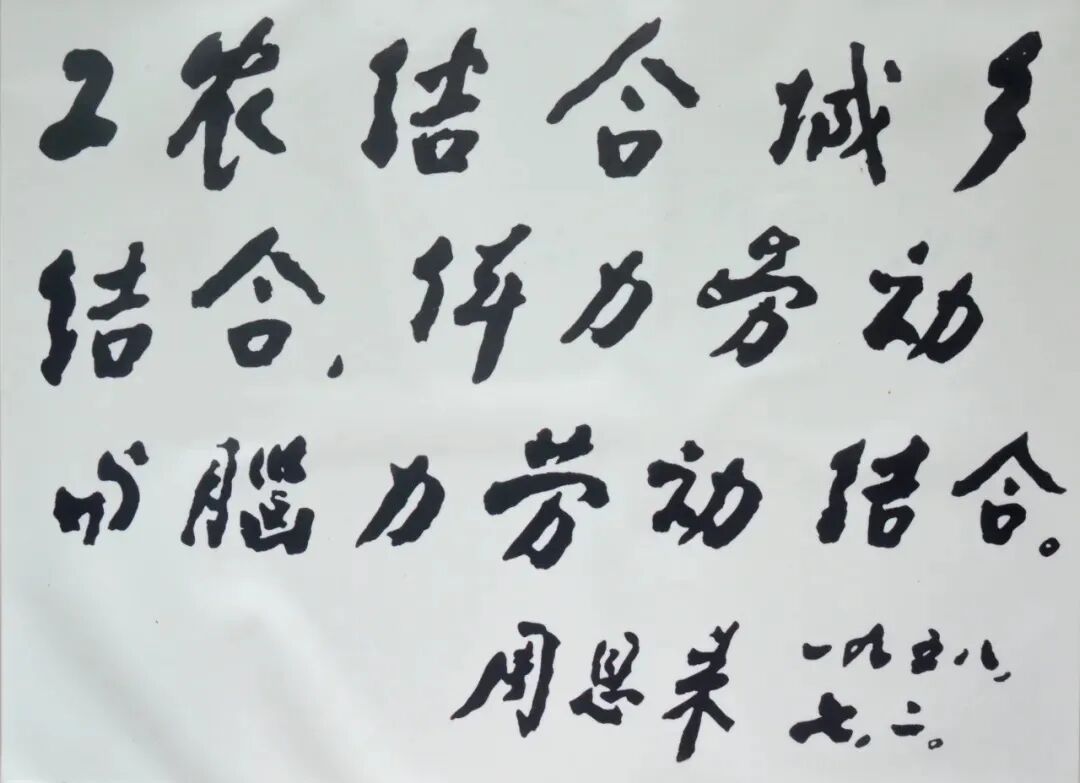 工农结合城乡
结合,体力劳动
与腦力劳动结合。
周恩来 一九五八,
七,二。